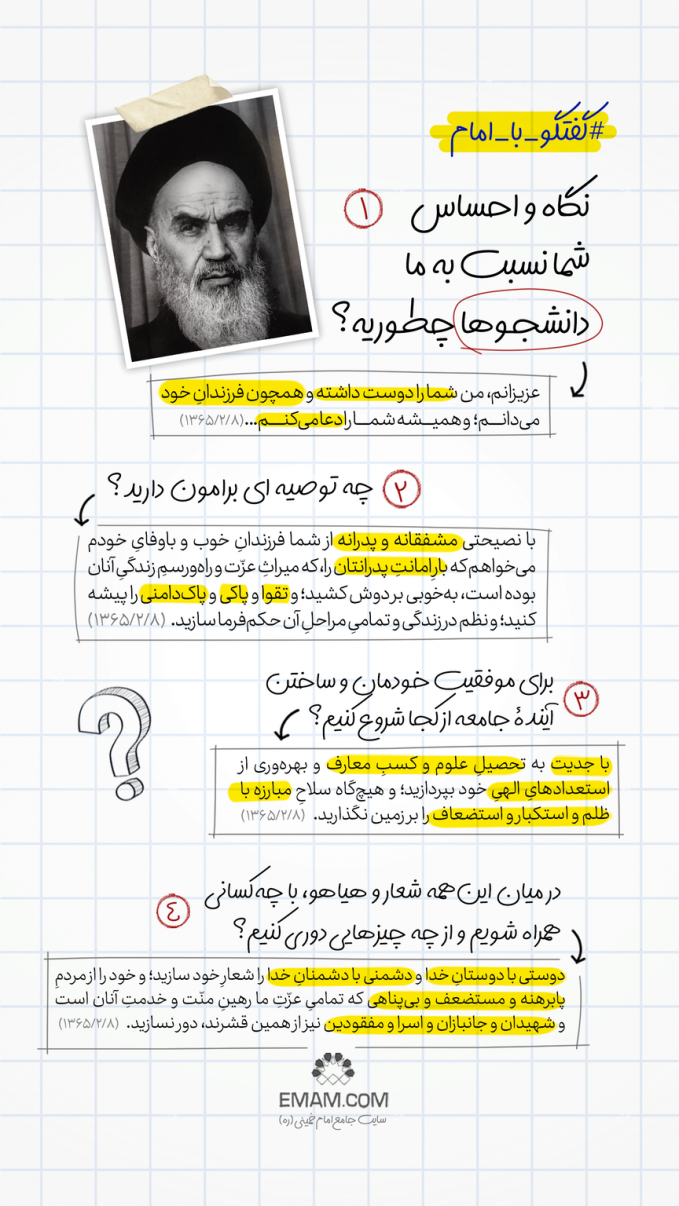 #گفتگو_با_امام
۱
نگاه و احساس
شما نسبت به ما
دانشجوها چطوریه؟
عزیزانم، من شما را دوست داشته و همچون فرزندانِ خود
می‌دانـــم؛ و همیـــشه شمـــا را دعا می‌کنـــم...(۱۳۶۵/۲/۸)
۲ چه توصیه ای برامون دارید؟
با نصیحتی مشفقانه و پدرانه از شما فرزندانِ خوب و باوفایِ خودم
می‌خواهم که بارِ امانتِ پدرانتان را، که میراثِ عزّت و راه‌ورسمِ زندگیِ آنان
بوده است، به‌خوبی بر دوش کشید؛ و تقوا و پاکی و پاک‌دامنی را پیشه
کنید؛ و نظم در زندگی و تمامیِ مراحلِ آن حکم‌فرما سازید. (۱۳۶۵/۲/۸)
۳
برای موفقیت خودمان و ساختن
آیندهٔ جامعه از کجا شروع کنیم؟
با جدیت به تحصیلِ علوم و کسبِ معارف و بهره‌وری از
استعدادهایِ الهیِ خود بپردازید؛ و هیچ‌گاه سلاحِ مبارزه با
ظلم و استکبار و استضعاف را بر زمین نگذارید. (۱۳۶۵/۲/۸)
٤
در میان این همه شعار و هیاهو، با چه کسانی
همراه شویم و از چه چیزهایی دوری کنیم؟
دوستی با دوستانِ خدا و دشمنی با دشمنانِ خدا را شعارِ خود سازید؛ و خود را از مردمِ
پابرهنه و مستضعف و بی‌پناهی که تمامیِ عزّتِ ما رهینِ منّت و خدمتِ آنان است
و شهیدان و جانبازان و اسرا و مفقودین نیز از همین قشرند، دور نسازید. (۱۳۶۵/۲/۸)
EMAM.COM
سایت جامع امام خمینی (ره)